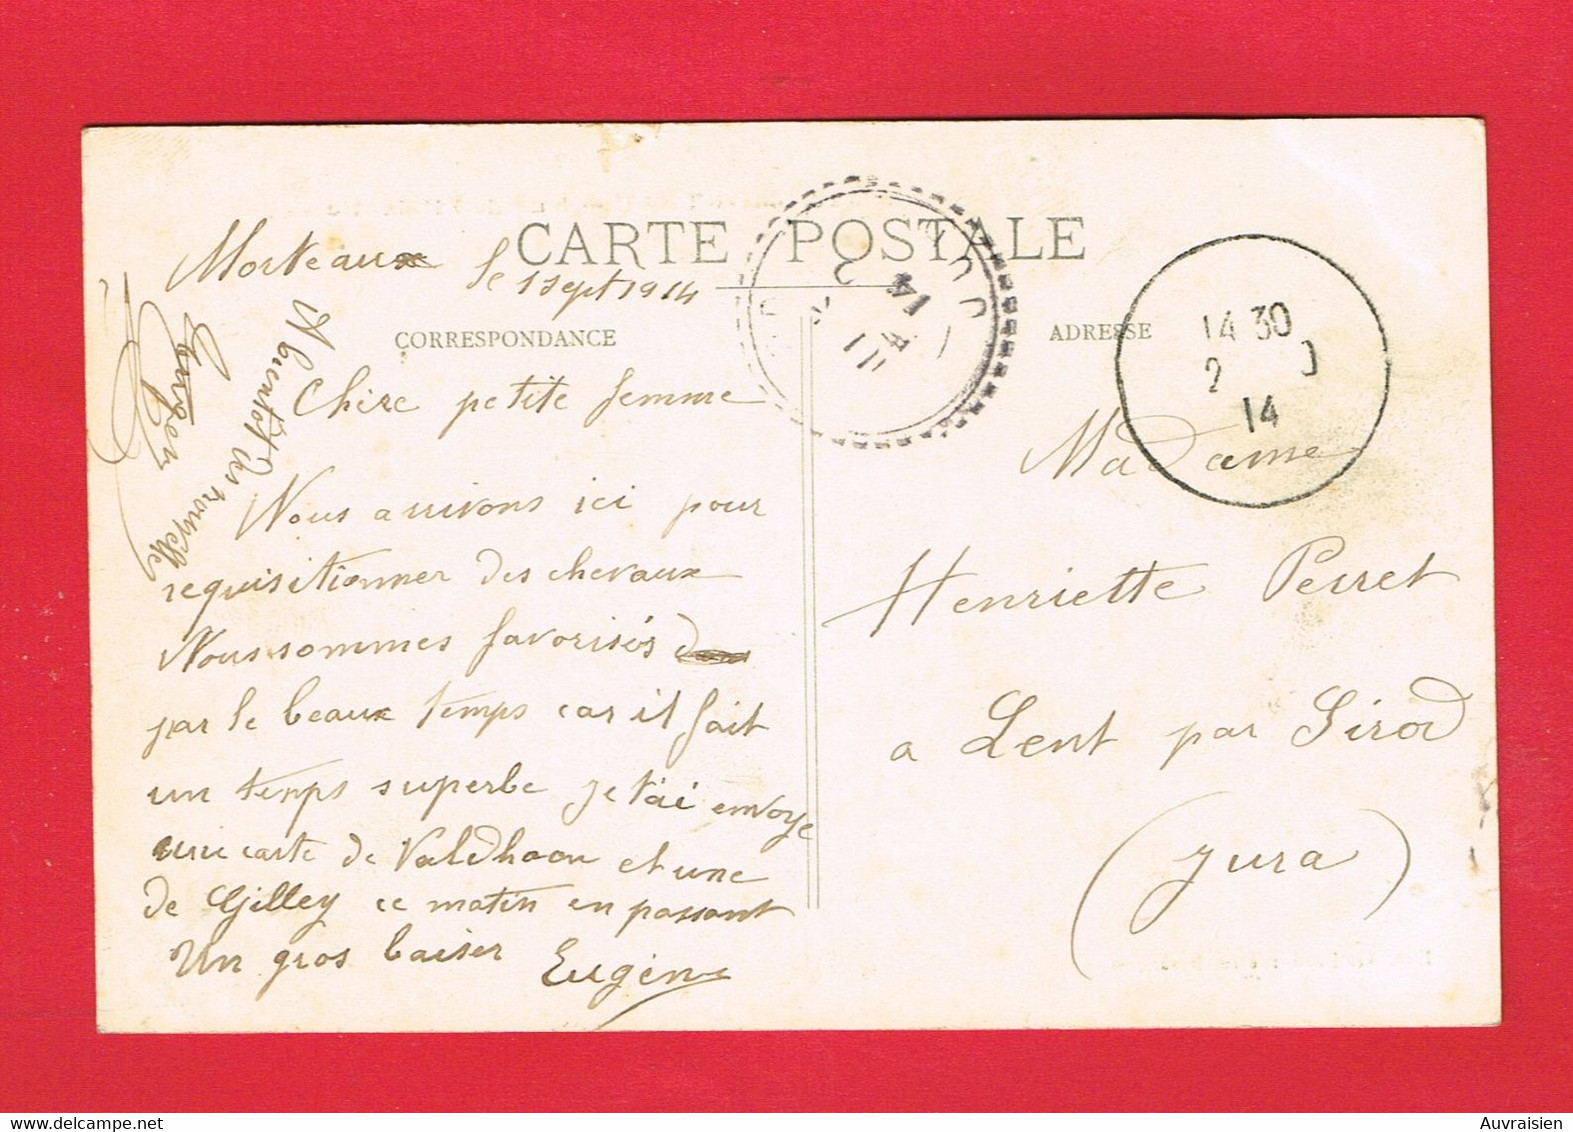 CARTE POSTALE
Morteaux le 1 sept 1914
CORRESPONDANCE
Chère petite femme
Nous arrivons ici pour
requisitionner des chevaux
Nous sommes favorisés
par le beaux temps car il fait
un temps superbe je t'ai envoye
une carte de Valdhaon et une
de Gilley ce matin en passant
Un gros baiser Eugène
A bientot des nouvelles
ADRESSE
14 30
2
14
Madame
Henriette Perret
a Lent par Sirod
(Jura)
Auvraisien